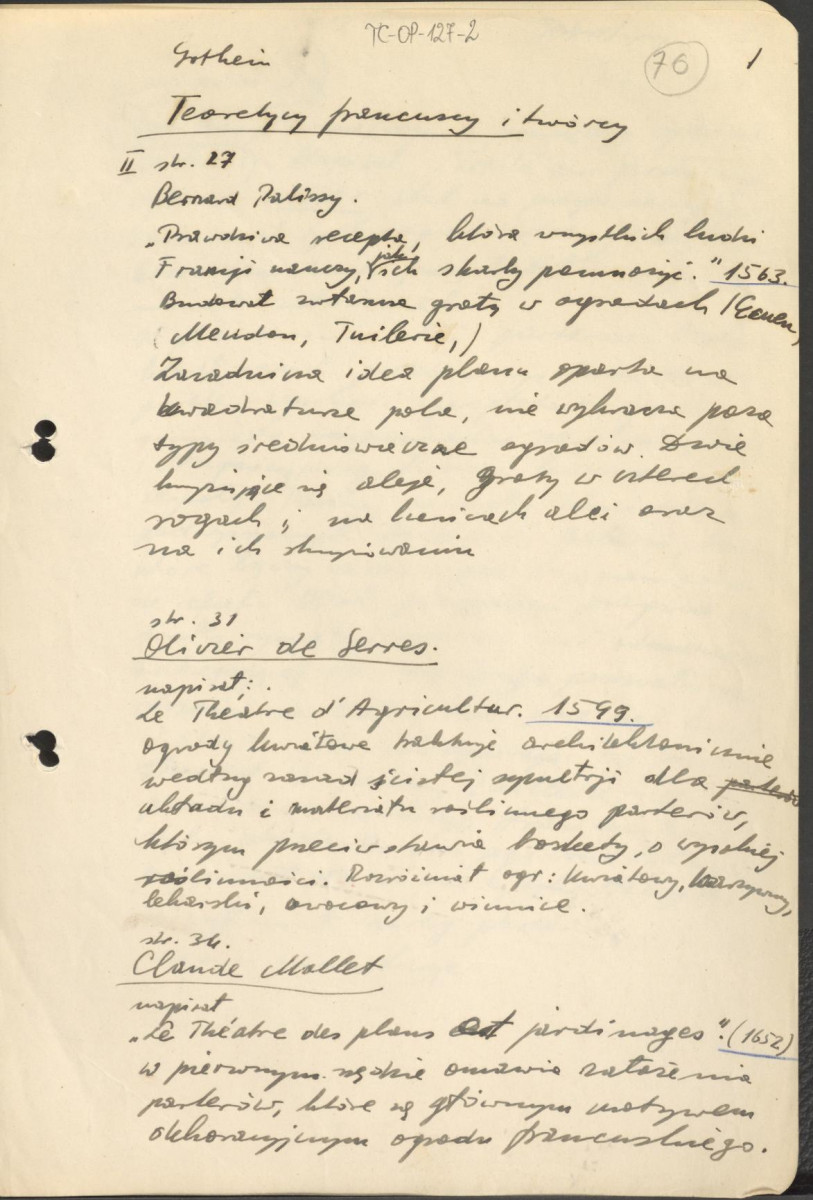 TC-OP-127-2
Gothein
76
1
Teoretycy francuscy i twórcy
II str. 27
Bernard Palissy.
„Prawdziwa recepta, która wszystkich ludzi
Francji nauczy, jak ich skarby pomnożyć." 1563.
Budował własne groty w ogrodach (Ecouen,
(Meudon, Tuilerie,)
Zasadnicza idea planu oparta na
kwadraturze pola, nie wykracza poza
typy średniowieczne ogrodów. Dwie
krzyżujące się aleje, groty w czterech
rogach i na końcach alei oraz
na ich skrzyżowaniu
str. 31
Olivier de Serres.
napisał:
Le Théatre d'Agricultur. 1599.
ogrody kwiatowe traktuje architektonicznie
według zasad ścisłej symetrji dla parterów
układu i materiału roślinnego parterów,
którym przeciwstawia boskety, o wysokiej
roślinności. Rozróżniał ogr: kwiatowy, warzywny,
lekarski, owocowy i winnice.
str. 34.
Claude Mollet
napisał
„Le Théatre des plans et jardinages". (1652)
w pierwszym rzędzie omawia założenia
parterów, które są głównym motywem
dekoracyjnym ogrodu francuskiego.